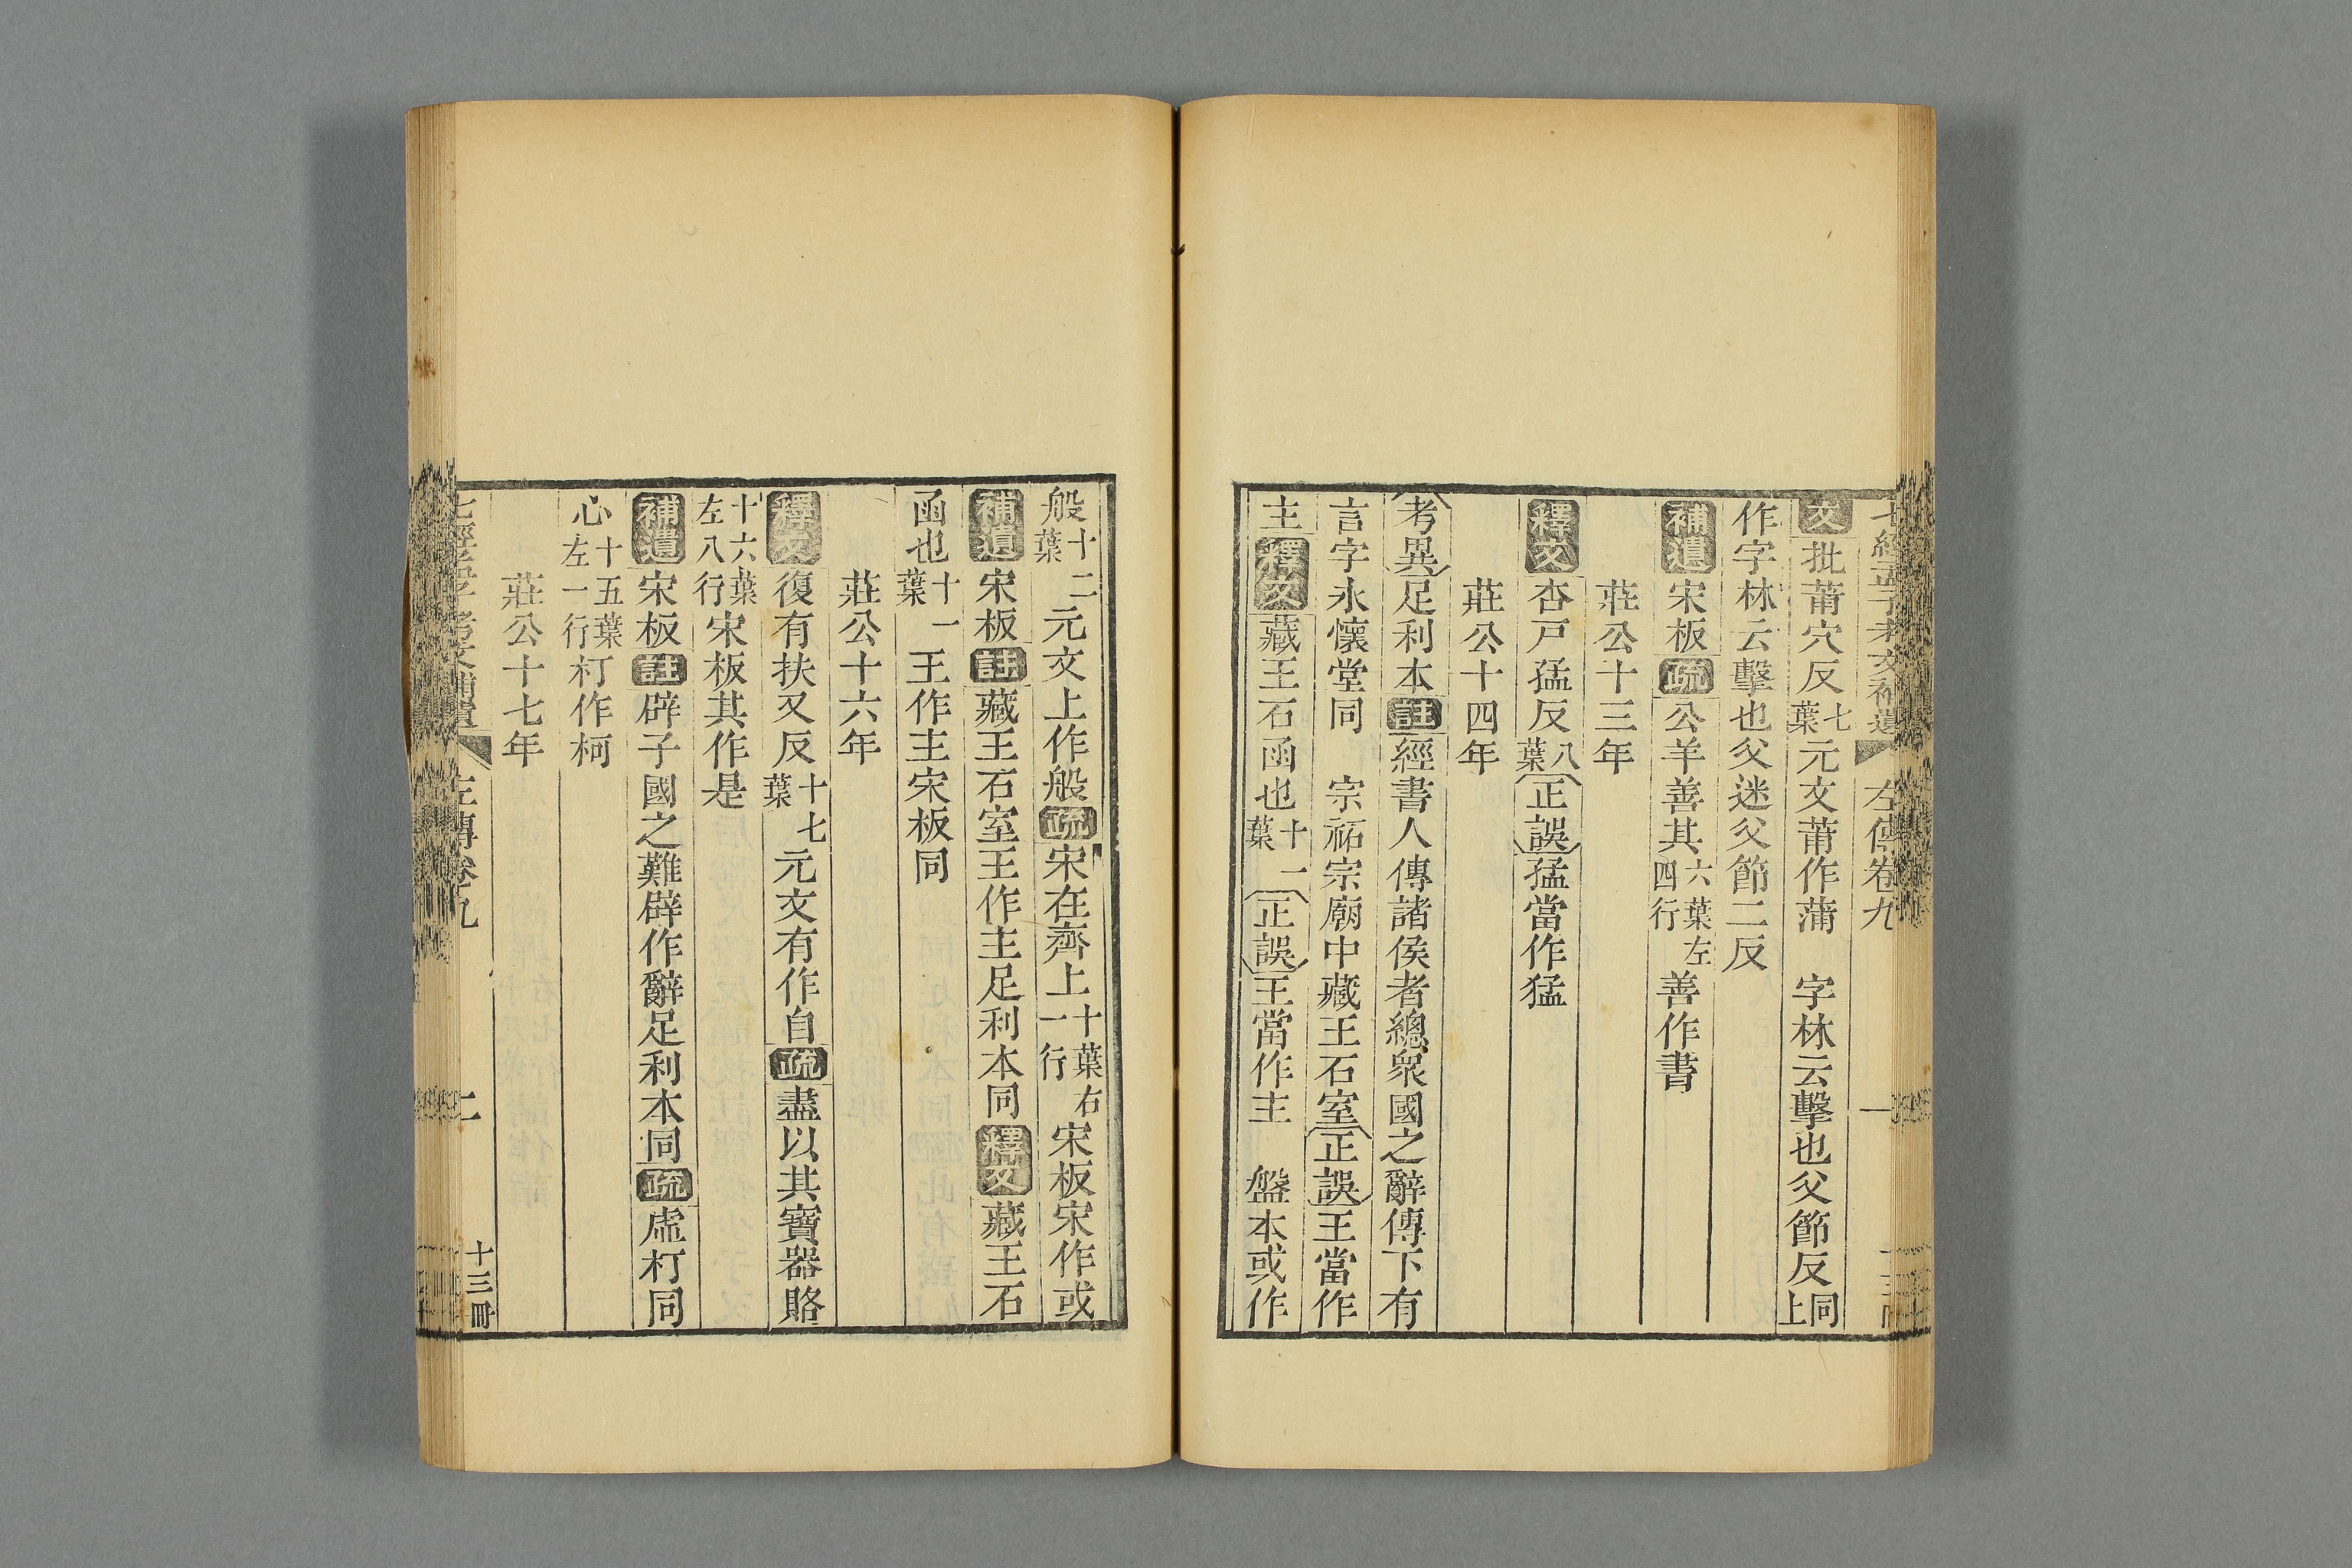 七經孟子考文補遺 左傳卷九 一
文批莆穴反七葉元文莆作蒲 字林云擊也父節反同上
作字林云擊也父迷父節二反
補遺宋板疏公羊善其六葉左四行善作書
莊公十三年
釋文杏戸猛反八葉正誤猛當作猛
莊公十四年
考異足利本註經書人傳諸侯者總衆國之辭傳下有
言字永懷堂同 宗祏宗廟中藏王石室正誤王當作
主釋文藏王石函也十一葉正誤王當作主 盤本或作
般十二葉元文上作般疏宋在齊上十葉右一行宋板宋作或
補遺宋板註藏王石室王作主足利本同釋文藏王石
函也十一葉王作主宋板同
莊公十六年
釋文復有扶又反十七葉元文有作自疏盡以其寶器賂
十六葉左八行宋板其作是
補遺宋板註辟子國之難辟作辭足利本同疏虛朾同
心十五葉左一行朾作柯
莊公十七年
七經孟子考文補遺 左傳卷九 二 十三冊